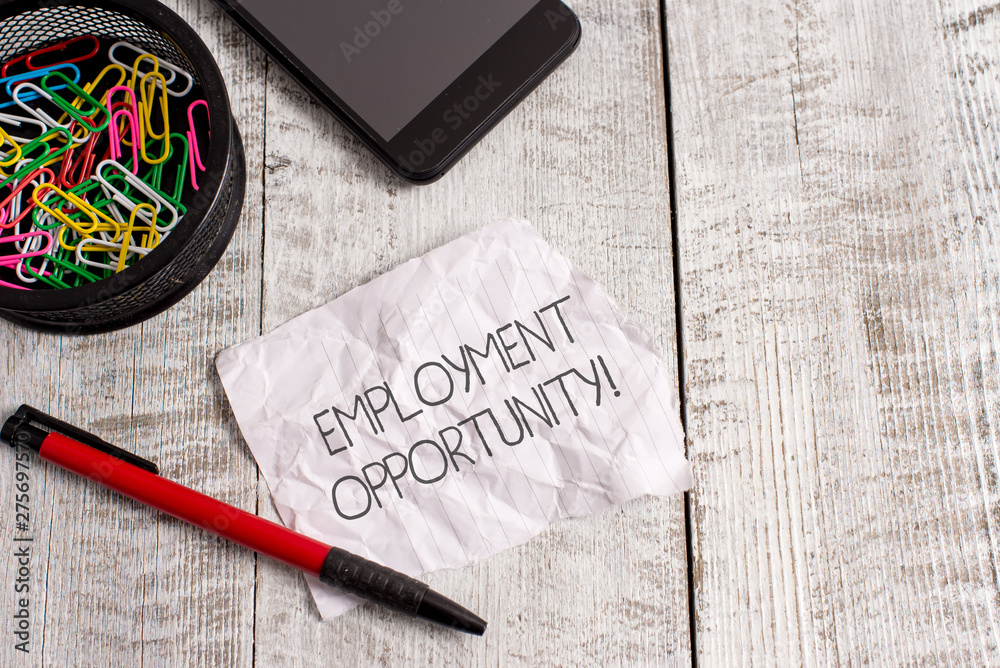 EMPLOYMENT
OPPORTUNITY!
Adobe Stock
Adobe Stock
Adobe Stock
Adobe Stock | #275697570